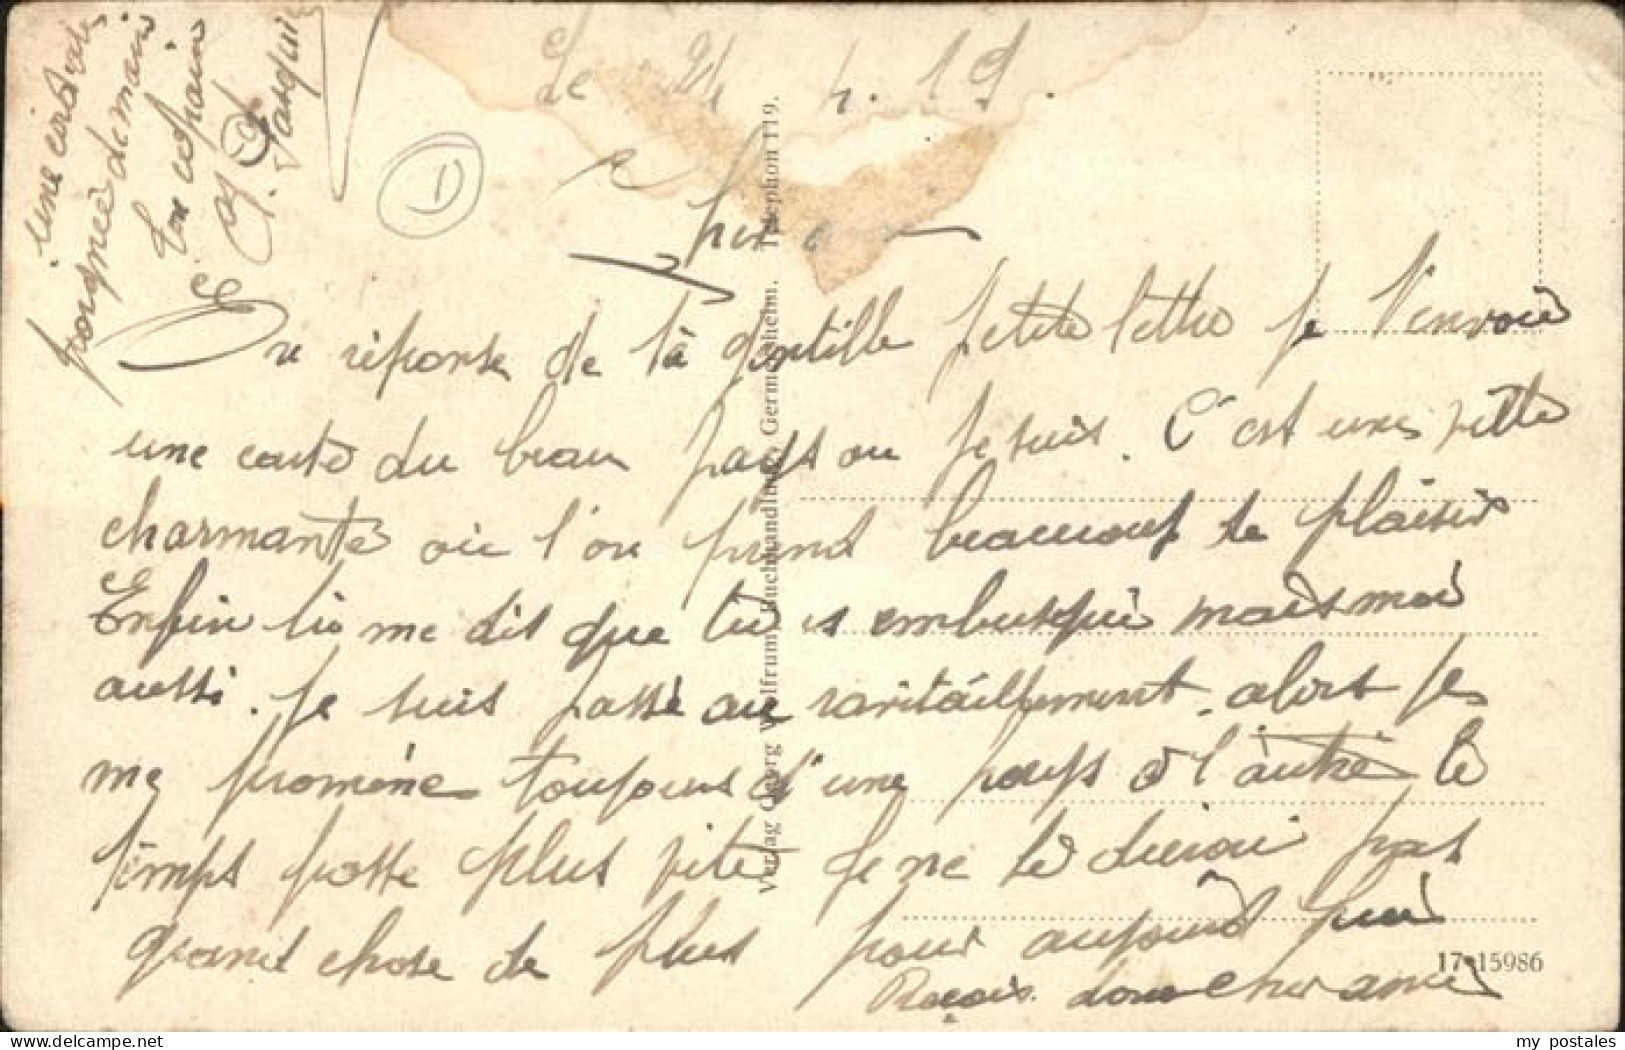 Le 24 4. 19.
Cher
En réponse de ta gentille petite lettre je t'envoie
une carte du beau pays ou je suis. C'est une ville
charmante où l'on prend beaucoup de plaisir
Enfin tu me dis que tu es embusqué mais moi
aussi. Je suis passé au ravitaillement alors je
me promène toujours d'une pays à l'autre le
temps passe plus vite Je ne te dirai pas
grand chose de plus pour aujourd'hui
Reçois donc cher ami
une cordiale
poignée de main
Ton copain
J. Pasquie
1
Verlag Georg Wolfrum, Buchhandlung, Germersheim. Telephon 119.
17 15986
my postales